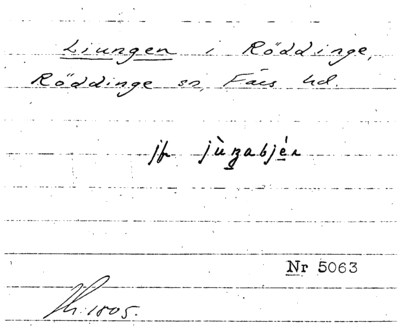 Liungen i Röddinge,
Röddinge sn, Färs hd.
jfr
Nr 5063
1805.